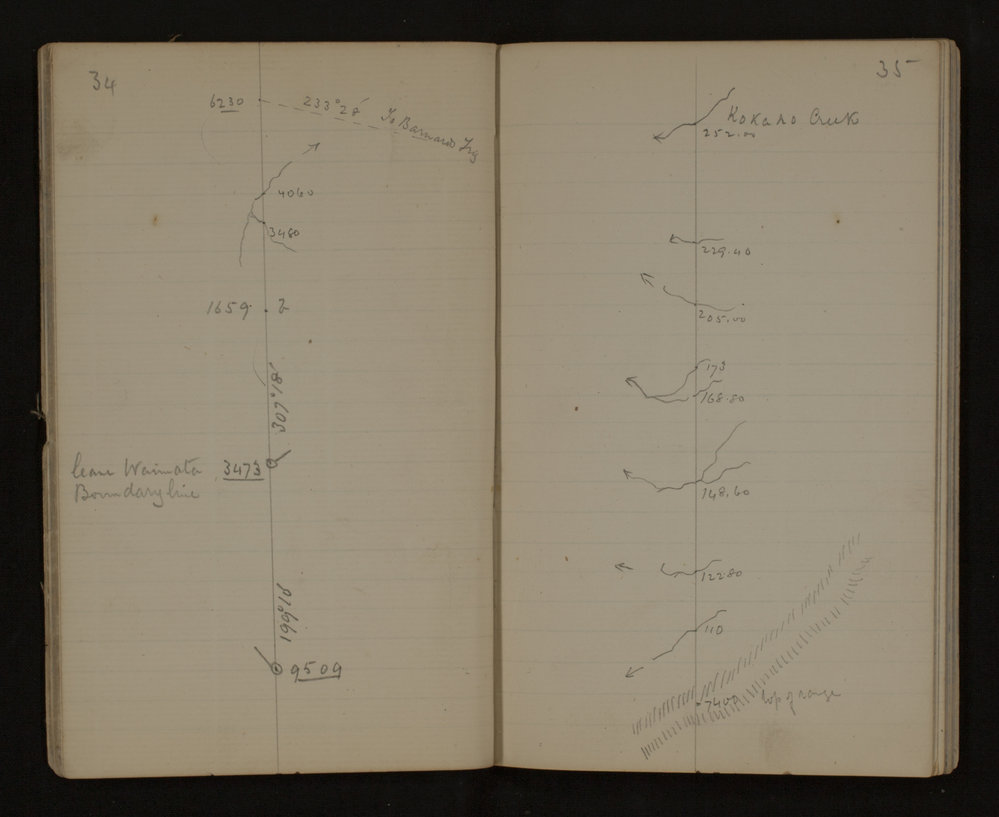 34
6230 233°28' To Barnard Trig
4060
3480
1659 2
307°18'
leave Waimata 3473
Boundary line
199°10
9509
35
Kokako Creek
252.00
229.40
205.00
173
168.80
148.60
122.80
110
7400 top of range